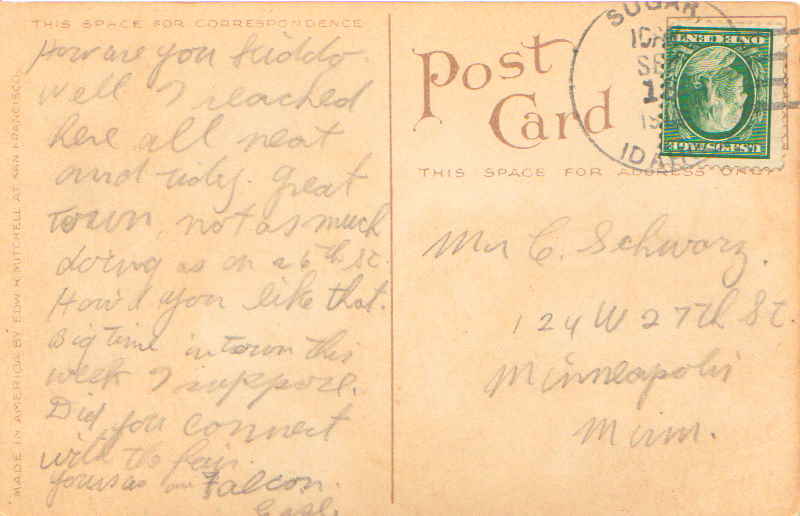 THIS SPACE FOR CORRESPONDENCE
How are you kiddo.
Well I reached
here all neat
and tidy. Great
town, not as much
doing as on a 6th St.
How'd you like that.
Big time in town this
week I suppose.
Did you connect
with the fair.
yours as Falcon.
MADE IN AMERICA BY EDW. H. MITCHELL AT SAN FRANCISCO
Post
Card
THIS SPACE FOR ADDRESS ONLY
SUGAR,
IDAHO
U.S. POSTAGE
ONE CENT
Mr C. Schwarz.
124 W 27th St.
Minneapolis
Minn.